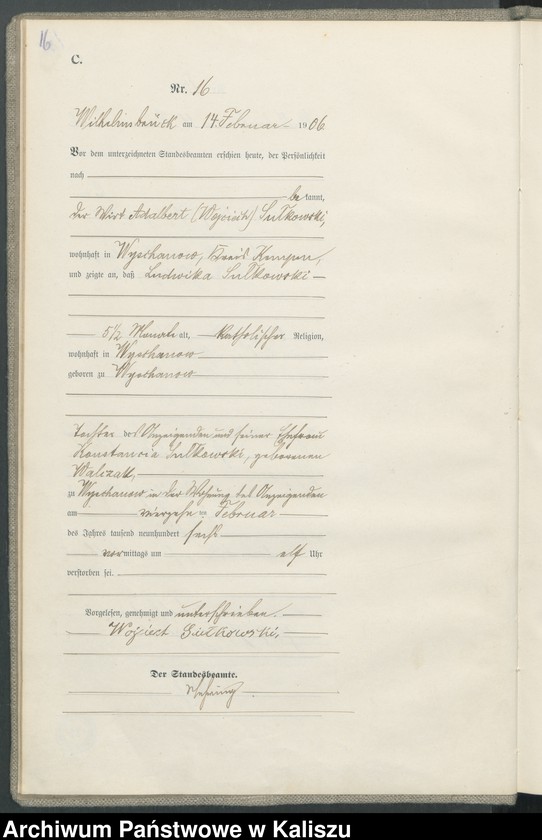 16
C.
Nr. 16
Wilhelmsbrück am 14. Februar 1906
Vor dem unterzeichneten Standesbeamten erschien heute, der Persönlichkeit
nach
be kannt,
der Wirt Adalbert (Wojciech) Sulkowski,
wohnhaft in Wyschanow, Kreis Kempen,
und zeigte an, daß Ludwika Sulkowski
5½ Monate alt, katholischer Religion,
wohnhaft in Wyschanow
geboren zu Wyschanow
Tochter des Anzeigenden und seiner Ehefrau
Konstancia Sulkowski, geborenen
Walczak,
zu Wyschanow in der Wohnung des Anzeigenden
am vierzehnten Februar
des Jahres tausend neunhundert sechs
vormittags um elf Uhr
verstorben sei.
Vorgelesen, genehmigt und unterschrieben.
Wojciech Sulkowski,
Der Standesbeamte.
Archiwum Państwowe w Kaliszu